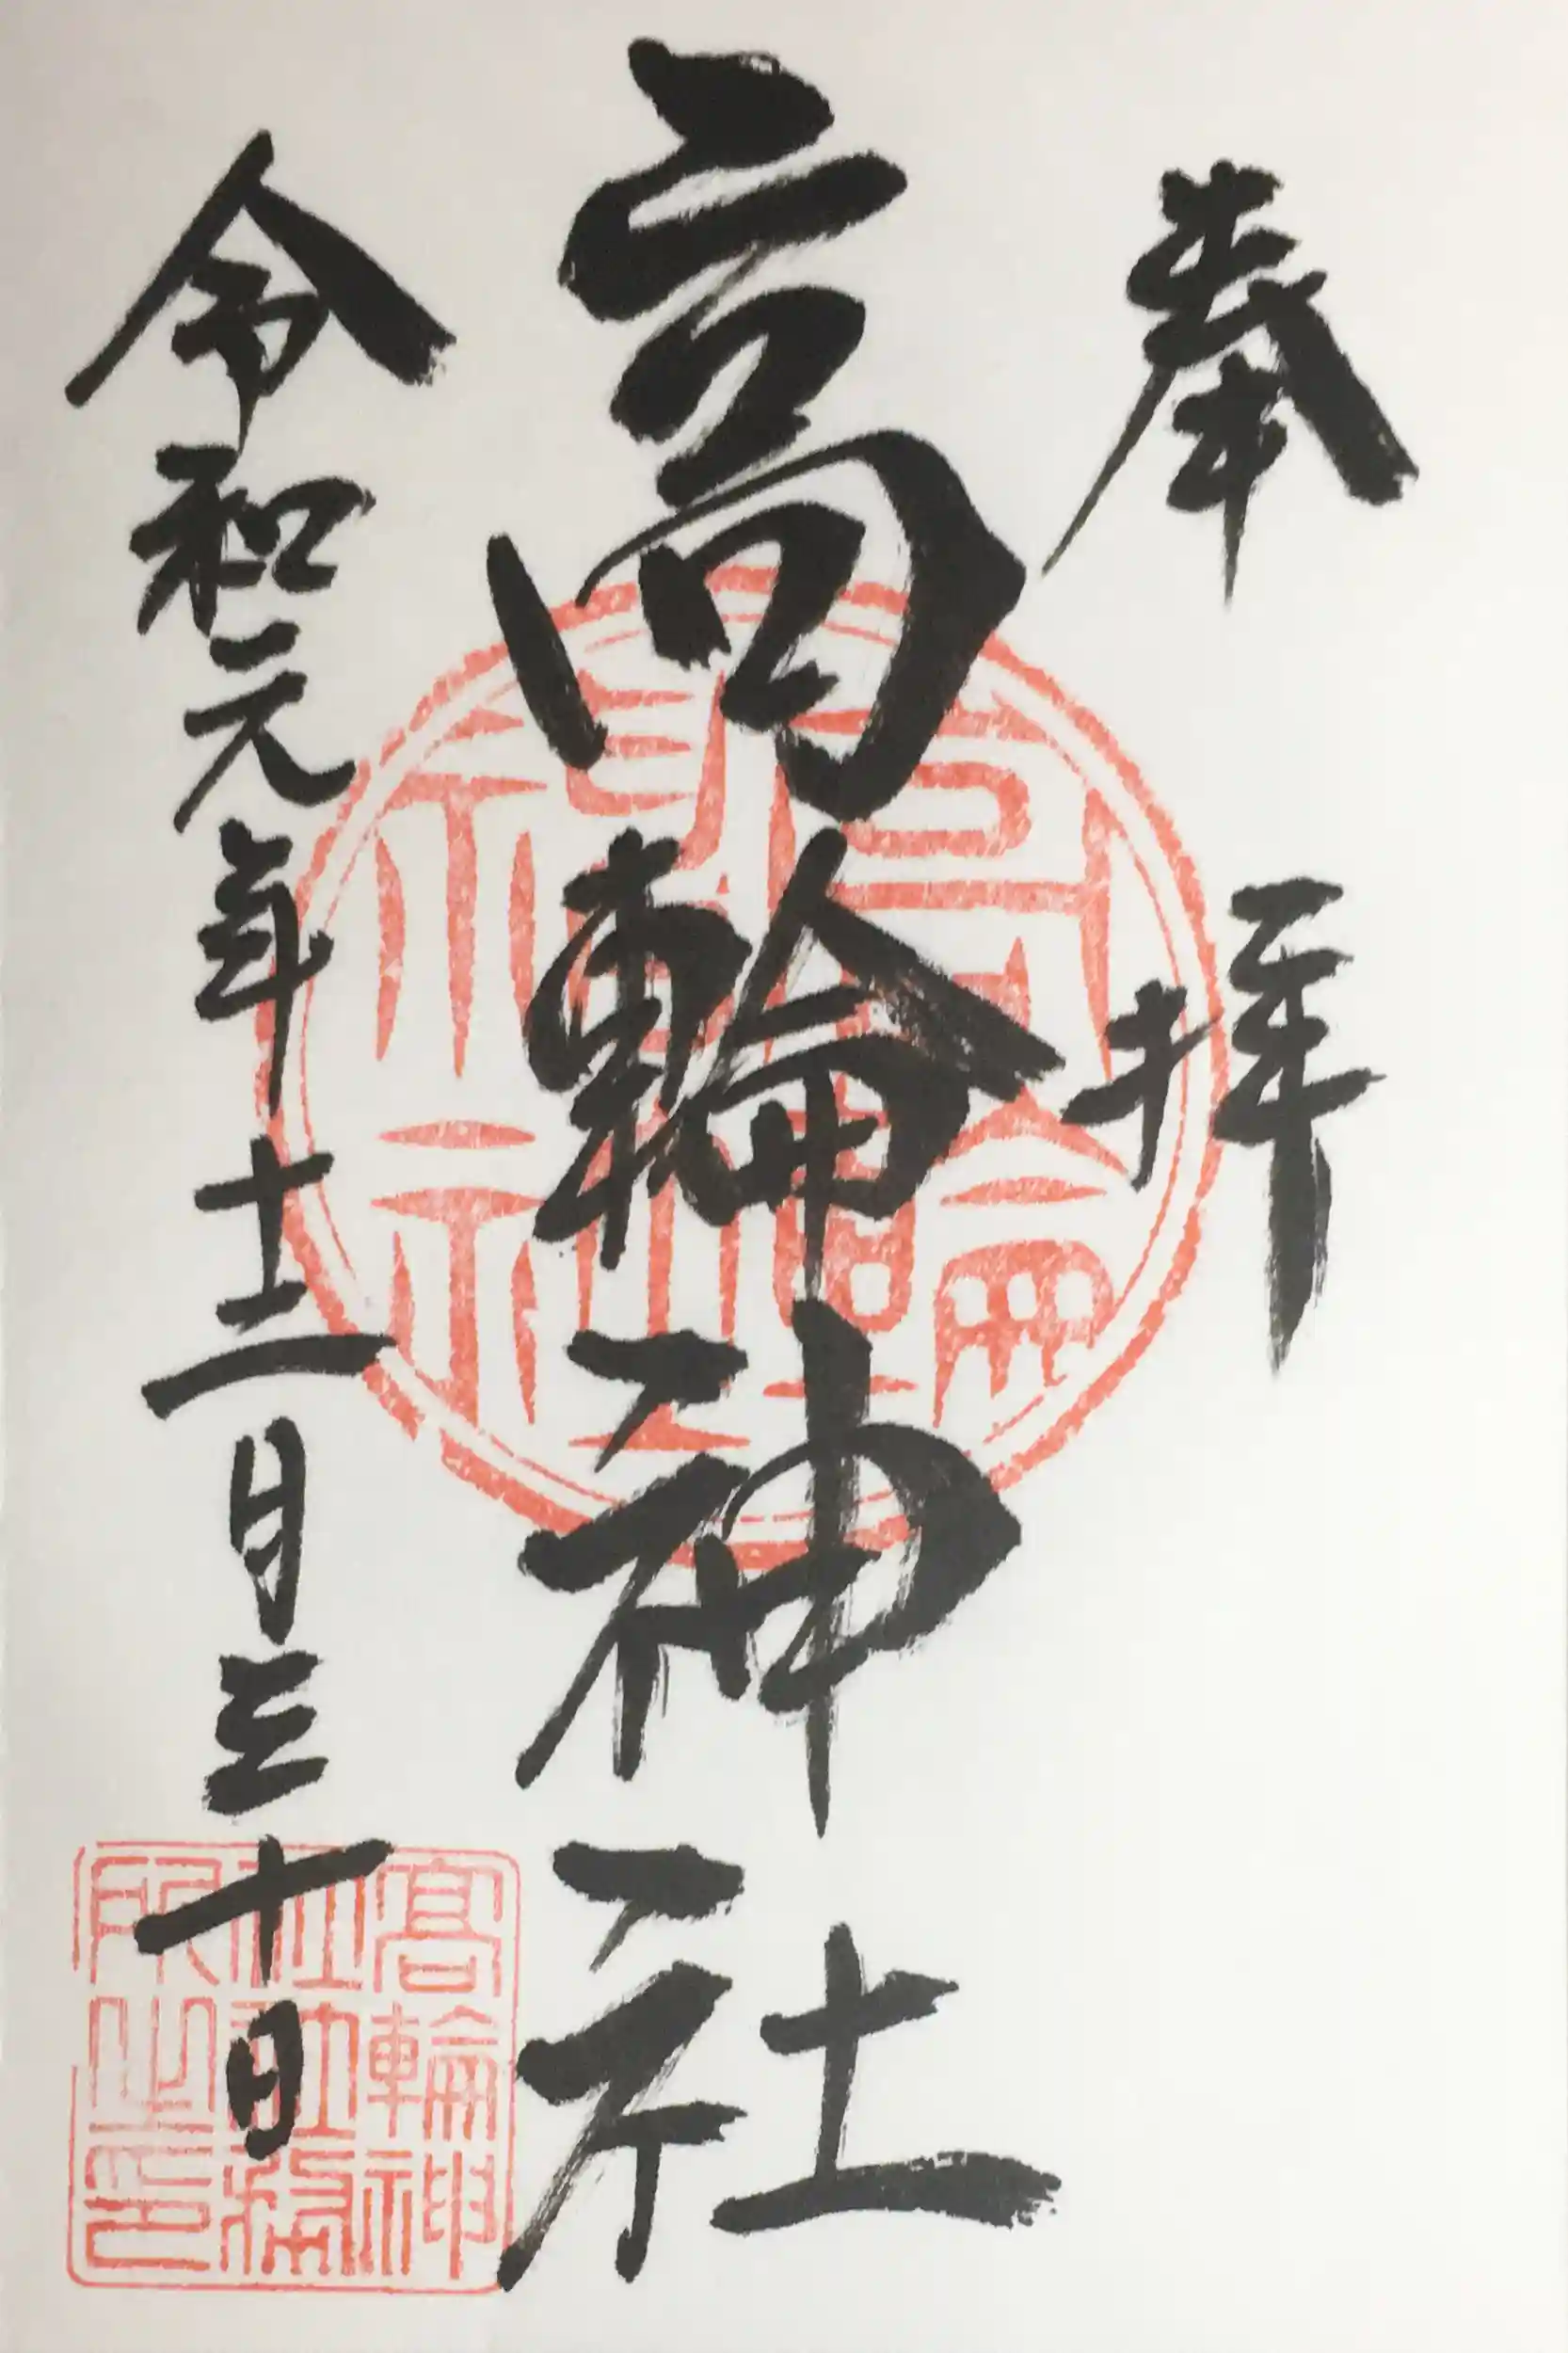 奉拝
高輪神社
令和元年十二月三十日
高輪神社
高輪神
社社務
所之印